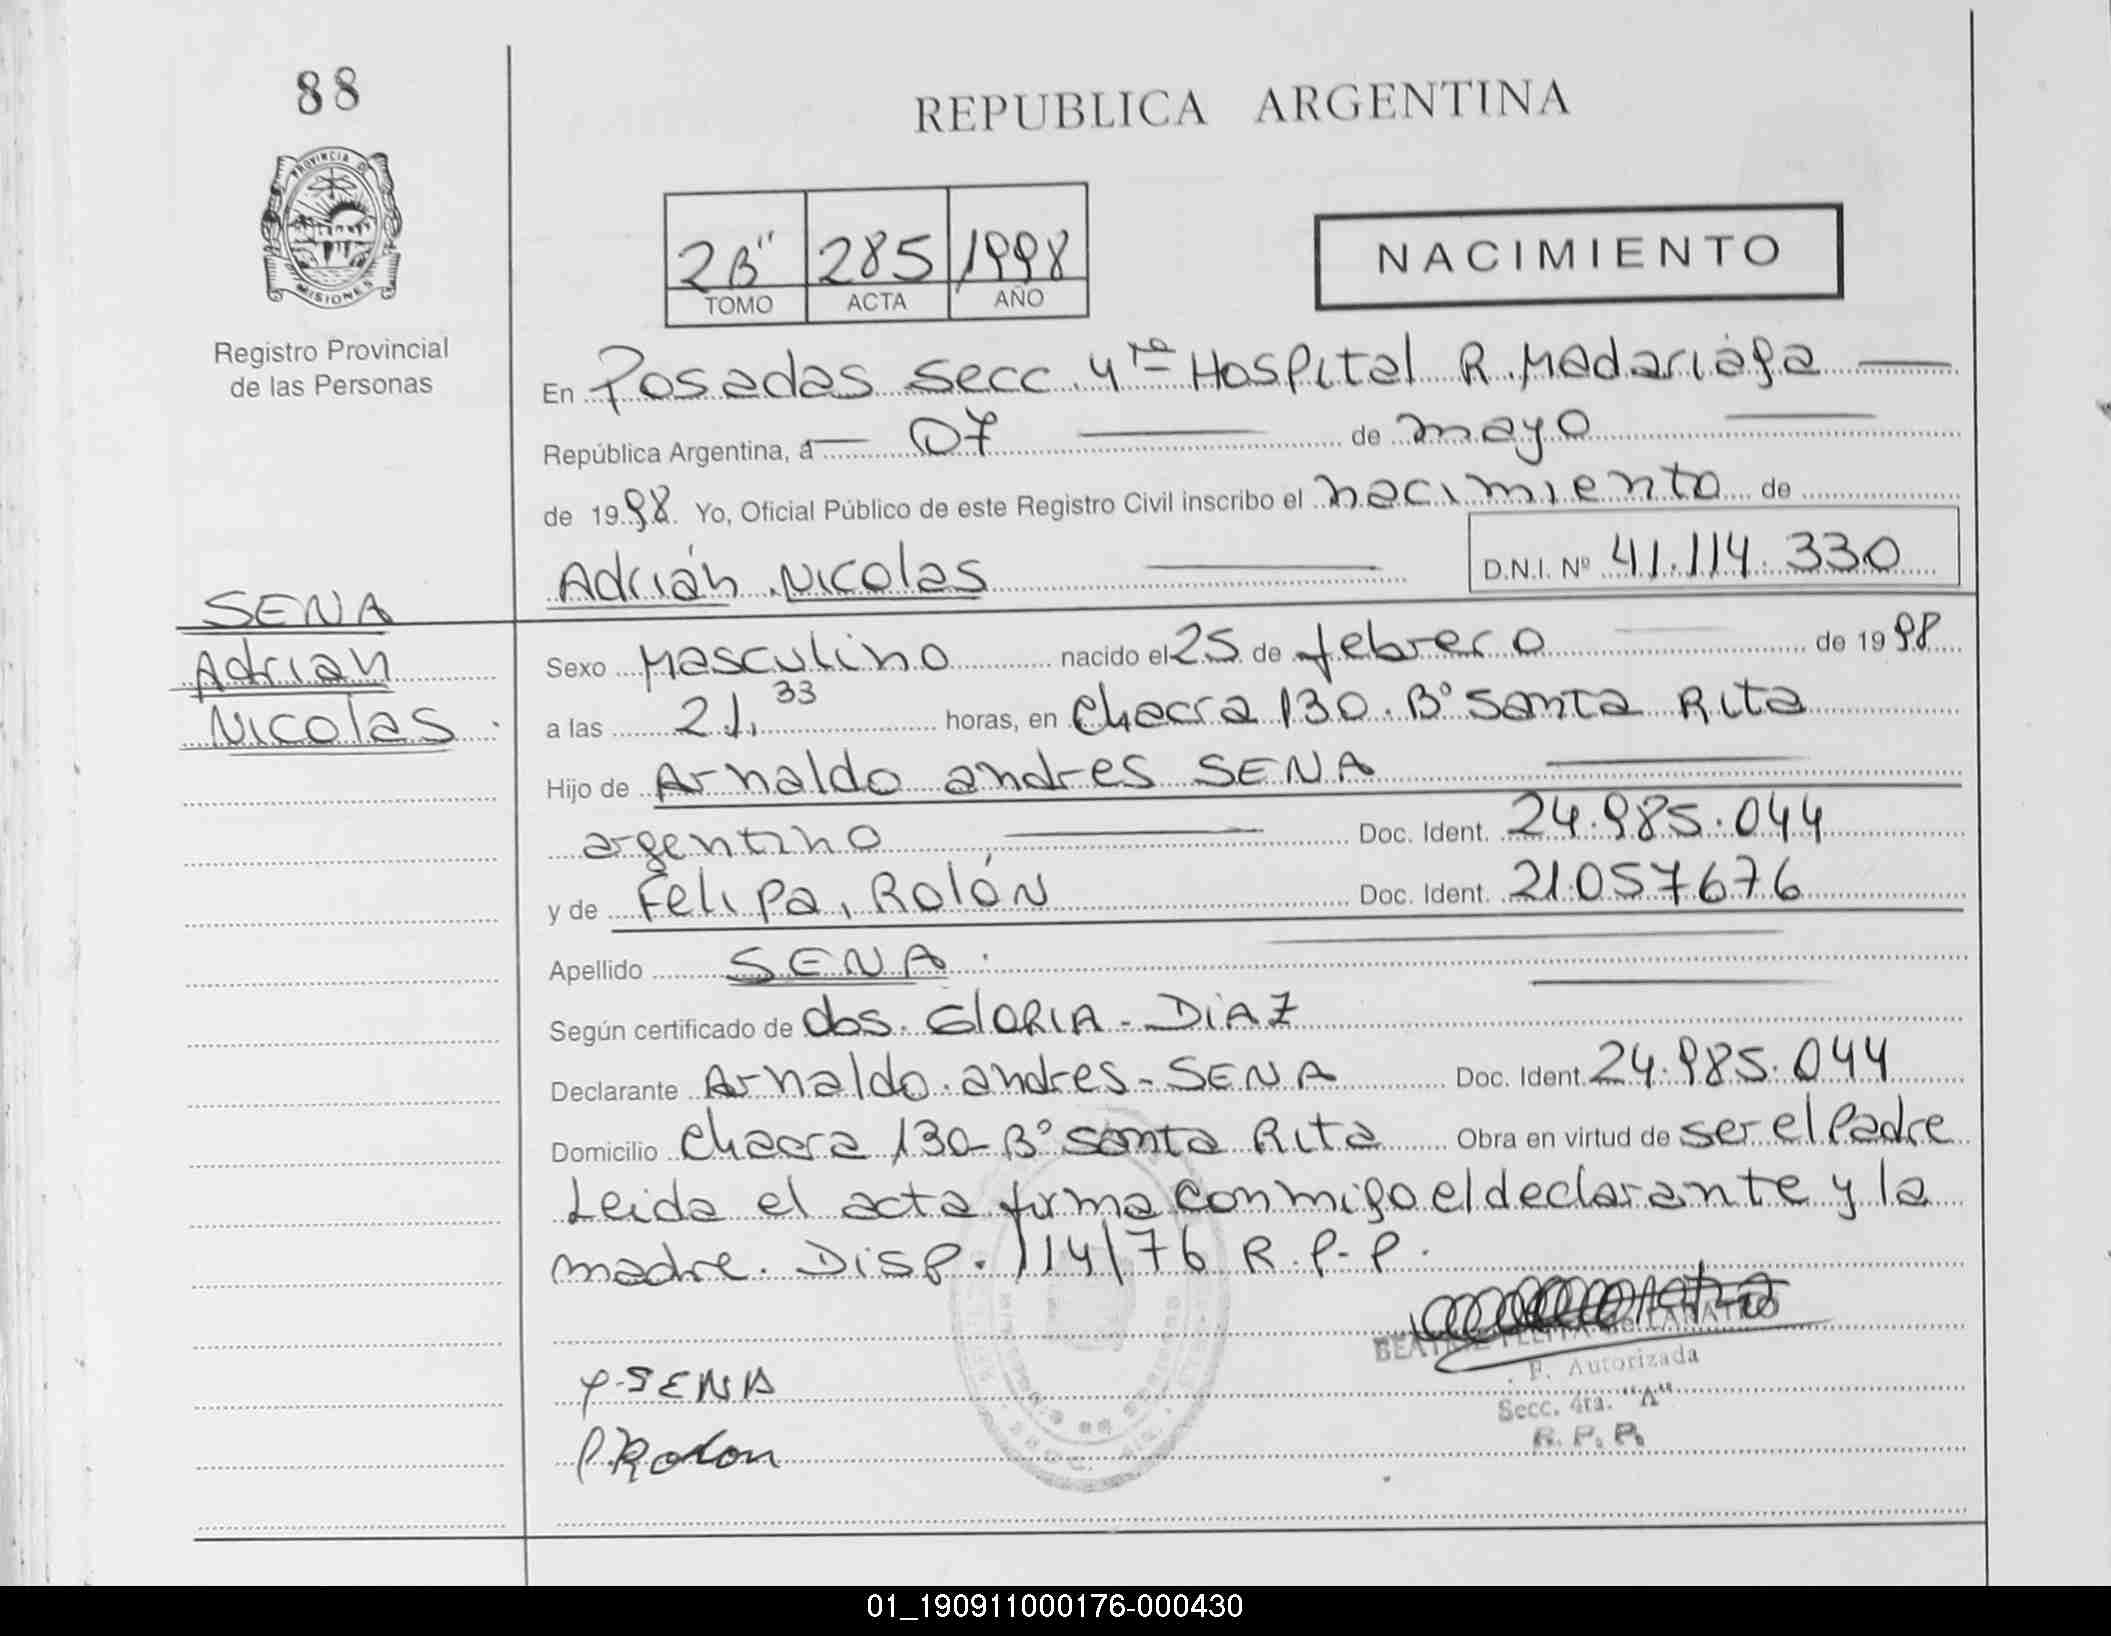 88
REPUBLICA ARGENTINA
PROVINCIA DE
MISIONES
Registro Provincial
de las Personas
2B" 285 1998
TOMO ACTA AÑO
NACIMIENTO
En Posadas Secc. 4ta Hospital R. Madariaga
República Argentina, a 07 de mayo
de 1998 Yo, Oficial Público de este Registro Civil inscribo el nacimiento de
Adrián Nicolas D.N.I. Nº 41.114.330
SENA
Adrian
Nicolas
Sexo Masculino nacido el 25 de febrero de 1998
a las 21,33 horas, en Chacra 130. Bº Santa Rita
Hijo de Arnaldo andres SENA
argentino Doc. Ident. 24.985.044
y de Felipa, Rolón Doc. Ident. 21.057676
Apellido SENA.
Según certificado de obs. GLORIA - DIAZ
Declarante Arnaldo. andres - SENA Doc. Ident. 24.985.044
Domicilio Chacra 130 - Bº Santa Rita Obra en virtud de ser el Padre
Leida el acta firma conmigo el declarante y la
madre. Disp. 114/76 R.P.P.
F. Autorizada
Secc. 4ta. "A"
R. P. P.
SENA
Rolon
01_190911000176-000430